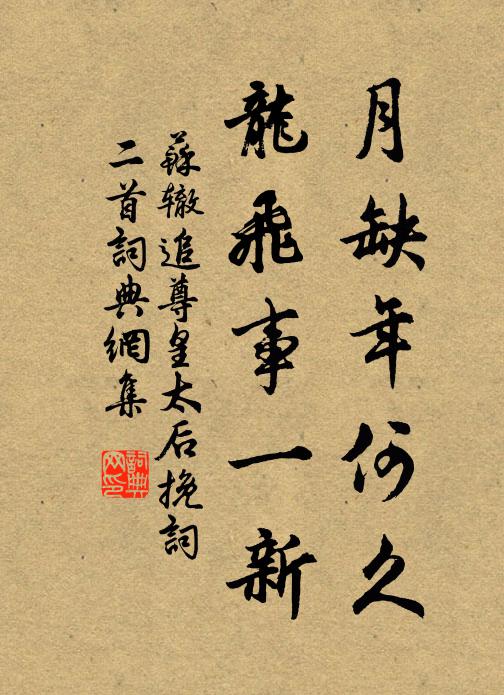 月缺年何久
龍飛事一新
蘇辙追尊皇太后挽詞
二首詞典網集
詞典网印